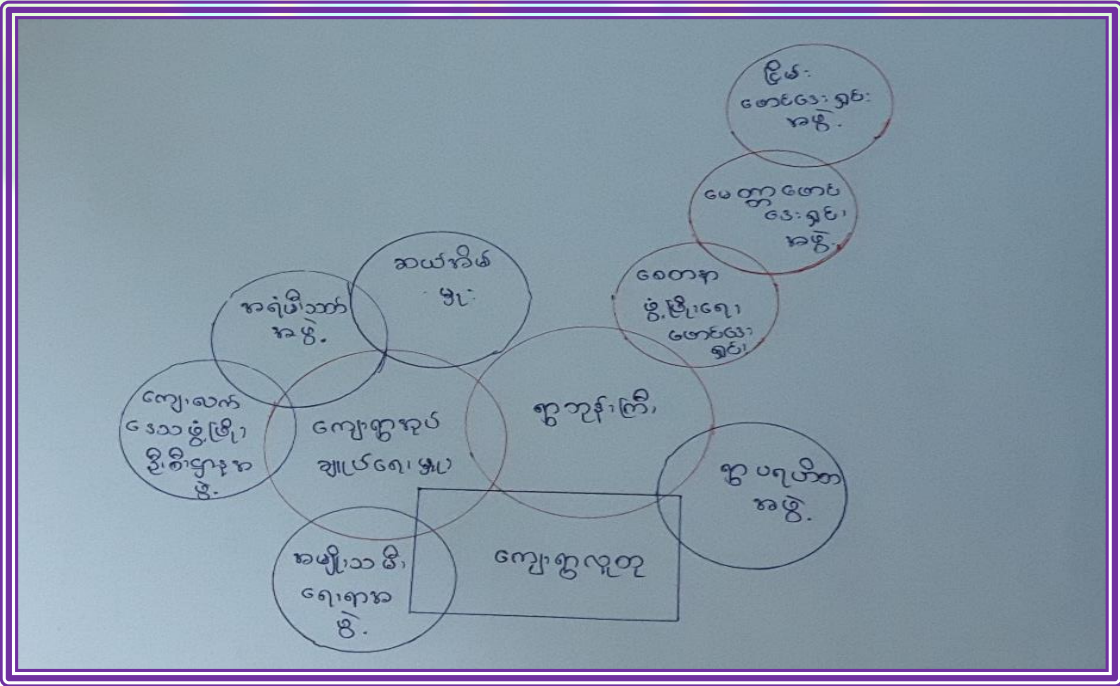 ငြိမ်း
ဖောင်ဒေးရှင်း
အဖွဲ့.
မေတ္တာဖောင်
ဒေးရှင်း
အဖွဲ့.
စေတနာ
ဖွံ့ဖြိုးရေး
ဖောင်ဒေး
ရှင်း
ဆယ်အိမ်
မှုး
အရံမီးသတ်
အဖွဲ့.
ကျေးလက်
ဒေသဖွံ့ဖြိုး
ဦးစီးဌာနအ
ဖွဲ့.
ကျေးရွာအုပ်
ချုပ်ရေးမှုး
ရွာဘုန်းကြီး
ရွာပရဟိတ
အဖွဲ့.
အမျိုးသမီး
ရေးရာအ
ဖွဲ့.
ကျေးရွာလူထု